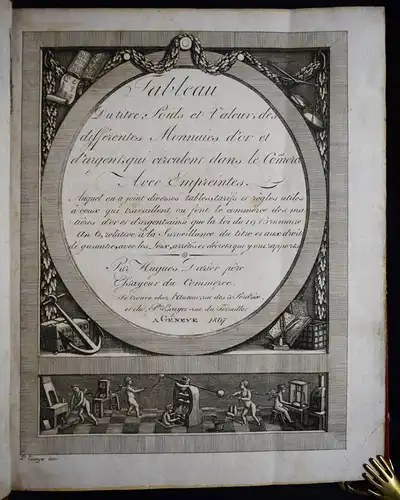 Tableau
Du titre, Poids et Valeur, des
différentes Monnaies d'or et
d'argent, qui circulent dans le Comerce
Avec Empreintes.
Auquel on a joint diverses tables, tarifs et règles utiles
à ceux qui travaillent ou font le commerce des ma
tières d'or et d'argent, ainsi que la loi du 19 Brumaire
An 6, relative à la Surveillance du titre et aux droits
de garantie, avec les Loix, arrêtés et décrets qui y ont rapport
Par Hugues Darier père
Essayeur du Commerce.
Se trouve chez l'Auteur, rue des
et chez rue du
A GENÈVE 1807